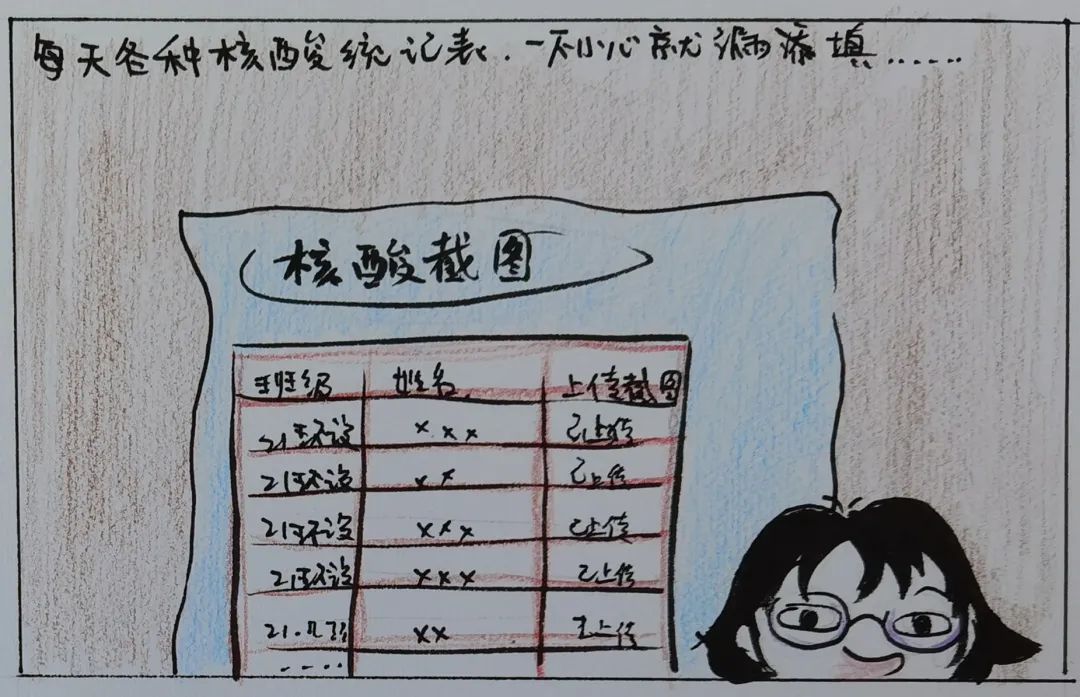 每天各种核酸统记表.一不小心就漏添填......
核酸截图
班级 姓名 上传截图
21环设 ××× 已上传
21环设 ×× 已上传
21环设 ××× 已上传
21环设 ××× 已上传
21. ×× 上传
.....